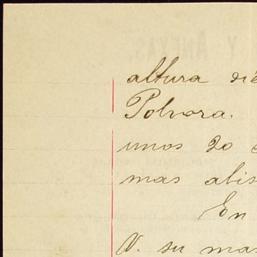 Y ANEXAS.
altura de
Polvora.
unos 20
mas abis
En
V. su mas